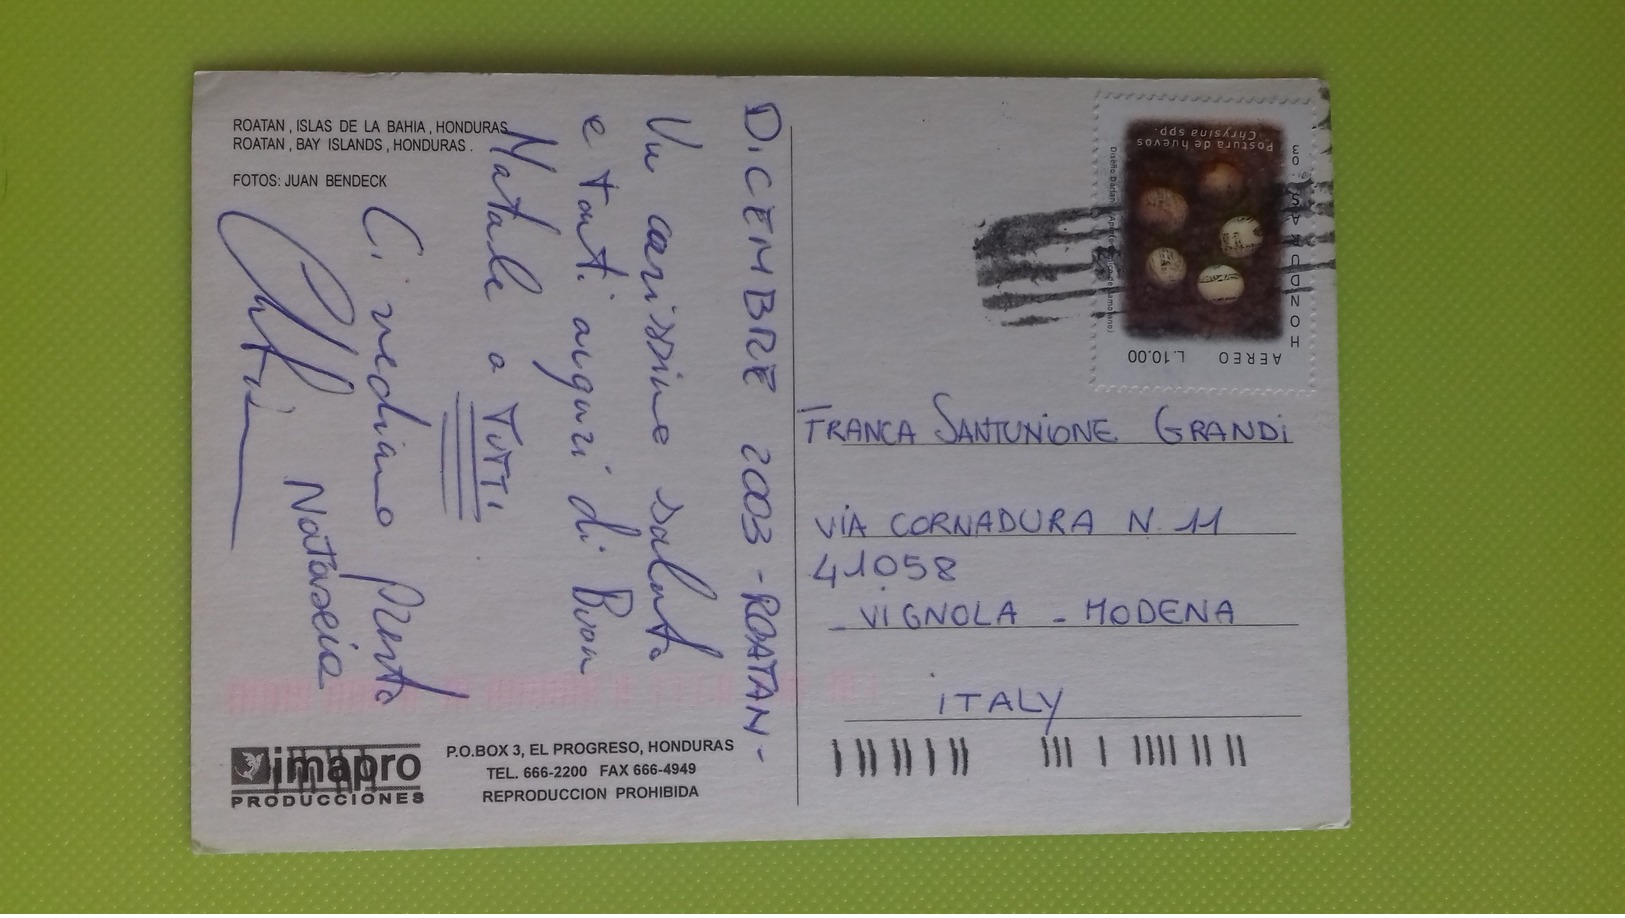 ROATAN , ISLAS DE LA BAHIA , HONDURAS
ROATAN , BAY ISLANDS , HONDURAS .
FOTOS: JUAN BENDECK
DiCEMBRE 2003 - ROATAN -
Un carissimo saluto
e tanti auguri di Buon
Natale a TUTTI
Ci vediamo presto
Natascia
imapro
PRODUCCIONES
P.O.BOX 3, EL PROGRESO, HONDURAS
TEL. 666-2200 FAX 666-4949
REPRODUCCION PROHIBIDA
HONDURAS 03
AEREO L.10.00
Postura de huevos
Chrysina spp.
FRANCA SANTUNiONE GRANDi
ViA CORNADURA N. 11
41058
- VIGNOLA - MODENA
iTALY